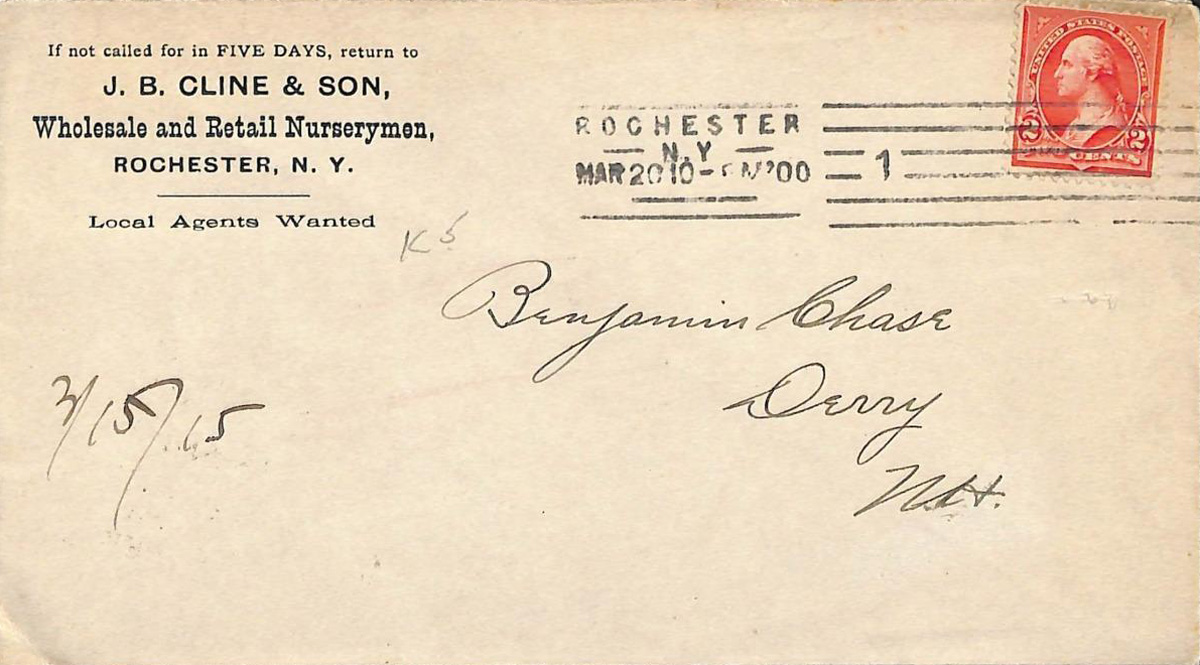 If not called for in FIVE DAYS, return to
J. B. CLINE & SON,
Wholesale and Retail Nurserymen,
ROCHESTER, N. Y.
Local Agents Wanted
UNITED STATES POSTAGE
2 2
CENTS.
ROCHESTER
N.Y
MAR 20 10- M '00
1
K 5
Benjamin Chase
Derry
N.H.
2/15/15